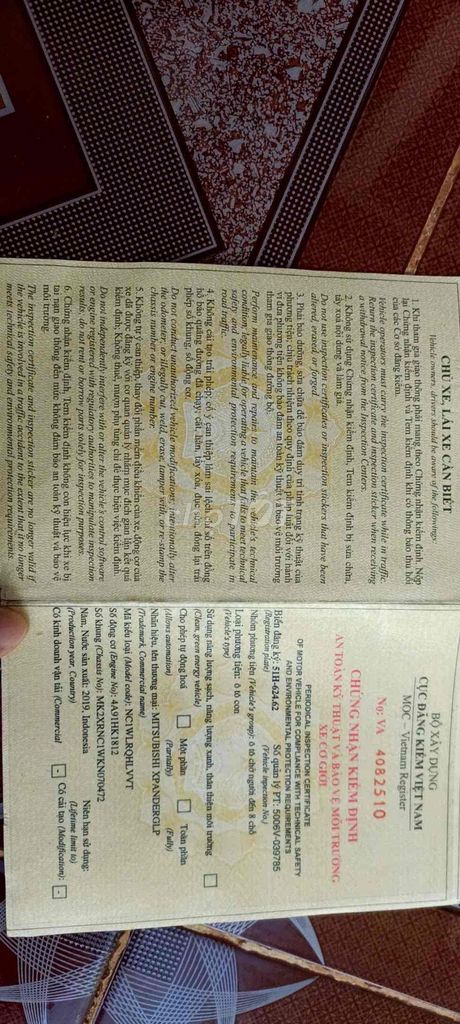 CHỦ XE, LÁI XE CẦN BIẾT
Vehicle owners, drivers should be aware of the followings:
1. Khi tham gia giao thông phải mang theo Chứng nhận kiểm định. Nộp
lại Chứng nhận kiểm định và Tem kiểm định khi có thông báo thu hồi
của các Cơ sở đăng kiểm.
Vehicle operators must carry the inspection certificate while in traffic.
Return the inspection certificate and inspection sticker when receiving
a withdrawal notice from the Inspection Centers.
2. Không sử dụng Chứng nhận kiểm định, Tem kiểm định bị sửa chữa,
tẩy xoá nội dung và làm giả.
Do not use inspection certificates or inspection stickers that have been
altered, erased, or forged.
3. Phải bảo dưỡng, sửa chữa để bảo đảm duy trì tình trạng kỹ thuật của
phương tiện; chịu trách nhiệm theo quy định của pháp luật đối với hành
vi đưa phương tiện không bảo đảm an toàn kỹ thuật và bảo vệ môi trường
tham gia giao thông đường bộ.
Perform maintenance and repairs to maintain the vehicle's technical
condition; legally liable for operating a vehicle that fails to meet technical
safety and environmental protection requirements to participate in
road traffic.
4. Không cải tạo trái phép; cố ý can thiệp làm sai lệch chỉ số trên đồng
hồ báo quãng đường đã chạy; cắt, hàn, tẩy xóa, đục sửa, đóng lại trái
phép số khung, số động cơ.
Do not conduct unauthorized vehicle modifications; intentionally alter
the odometer; or illegally cut, weld, erase, tamper with, or re-stamp the
chassis number or engine number.
5. Không tự ý can thiệp, thay đổi phần mềm điều khiển của xe, động cơ của
xe đã được đăng ký với cơ quan quản lý nhằm mục đích gian lận kết quả
kiểm định; không thuê, mượn phụ tùng chỉ để thực hiện việc kiểm định.
Do not independently interfere with or alter the vehicle's control software
or engine registered with regulatory authorities to manipulate inspection
results, do not rent or borrow parts solely for inspection purposes.
6. Chứng nhận kiểm định, Tem kiểm định không còn hiệu lực khi xe bị
tai nạn giao thông đến mức không đảm bảo an toàn kỹ thuật và bảo vệ
môi trường.
The inspection certificate and inspection sticker are no longer valid if
the vehicle is involved in a traffic accident to the extent that it no longer
meets technical safety and environmental protection requirements.
BỘ XÂY DỰNG
CỤC ĐĂNG KIỂM VIỆT NAM
MOC - Vietnam Register
No: VA 4082510
CHỨNG NHẬN KIỂM ĐỊNH
AN TOÀN KỸ THUẬT VÀ BẢO VỆ MÔI TRƯỜNG
XE CƠ GIỚI
PERIODICAL INSPECTION CERTIFICATE
OF MOTOR VEHICLE FOR COMPLIANCE WITH TECHNICAL SAFETY
AND ENVIRONMENTAL PROTECTION REQUIREMENTS
Biển đăng ký: 51H-624.62 Số quản lý PT: 5006V-039785
(Registration Plate) (Vehicle Inspection No.)
Nhóm phương tiện (Vehicle's group): ô tô chở người đến 8 chỗ
Loại phương tiện: ô tô con
(Vehicle's type)
Sử dụng năng lượng sạch, năng lượng xanh, thân thiện môi trường
(Clean, green energy vehicle)
Cho phép tự động hoá Một phần Toàn phần
(Allows automation) (Partially) (Fully)
Nhãn hiệu, tên thương mại: MITSUBISHI XPANDERGLP
(Trademark, Commercial name)
Mã kiểu loại (Model code): NC1WLRQHLVVT
Số động cơ (Engine No): 4A91HK1812
Số khung (Chassis No): MK2XRNC1WKN070472
Năm, Nước sản xuất: 2019, Indonesia Niên hạn sử dụng:
(Production year, Country) (Lifetime limit to)
Có kinh doanh vận tải (Commercial - Có cải tạo (Modification): -